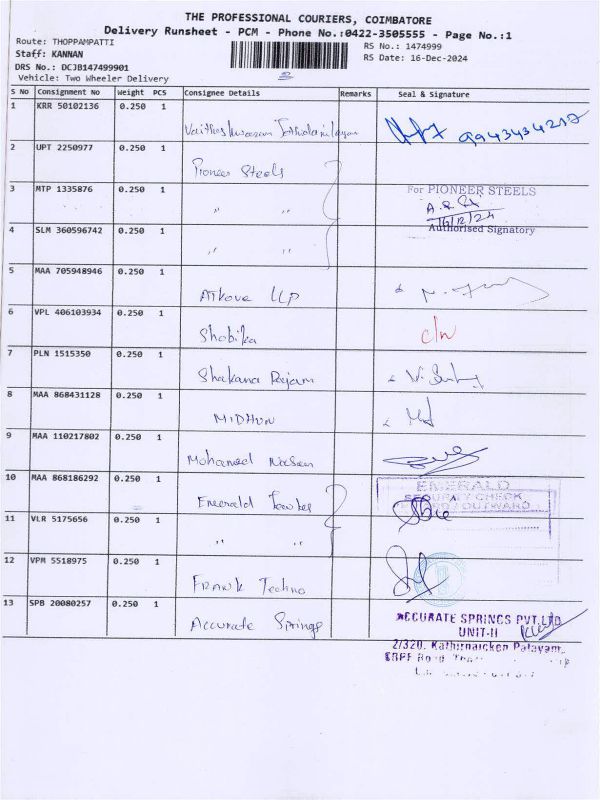 THE PROFESSIONAL COURIERS, COIMBATORE
Delivery Runsheet - PCM - Phone No.:0422-3505555 - Page No.:1
Route: THOPPAMPATTI
RS No.: 1474999
Staff: KANNAN
RS Date: 16-Dec-2024
DRS No.: DCJB147499901
Vehicle: Two Wheeler Delivery
S No Consignment No Weight PCS Consignee Details Remarks Seal & Signature
1 KRR 50102136 0.250 1 9943434217
2 UPT 2250977 0.250 1 Pioneer Steels
3 MTP 1335876 0.250 1 " " For PIONEER STEELS
16/12/24
4 SLM 360596742 0.250 1 " " Authorised Signatory
5 MAA 705948946 0.250 1 LLP
6 VPL 406103934 0.250 1 Shobika
7 PLN 1515350 0.250 1
8 MAA 868431128 0.250 1 MIDHUN
9 MAA 110217802 0.250 1 Mohamed
10 MAA 868186292 0.250 1 Emerald EMERALD
SECURITY CHECK
OUTWARD
11 VLR 5175656 0.250 1 " "
12 VPM 5518975 0.250 1 FRANK Techno
13 SPB 20080257 0.250 1 Accurate Springs ACCURATE SPRINGS PVT.LTD
UNIT-II
2/320, Kathirnaicken Palayam,
CRPF Road